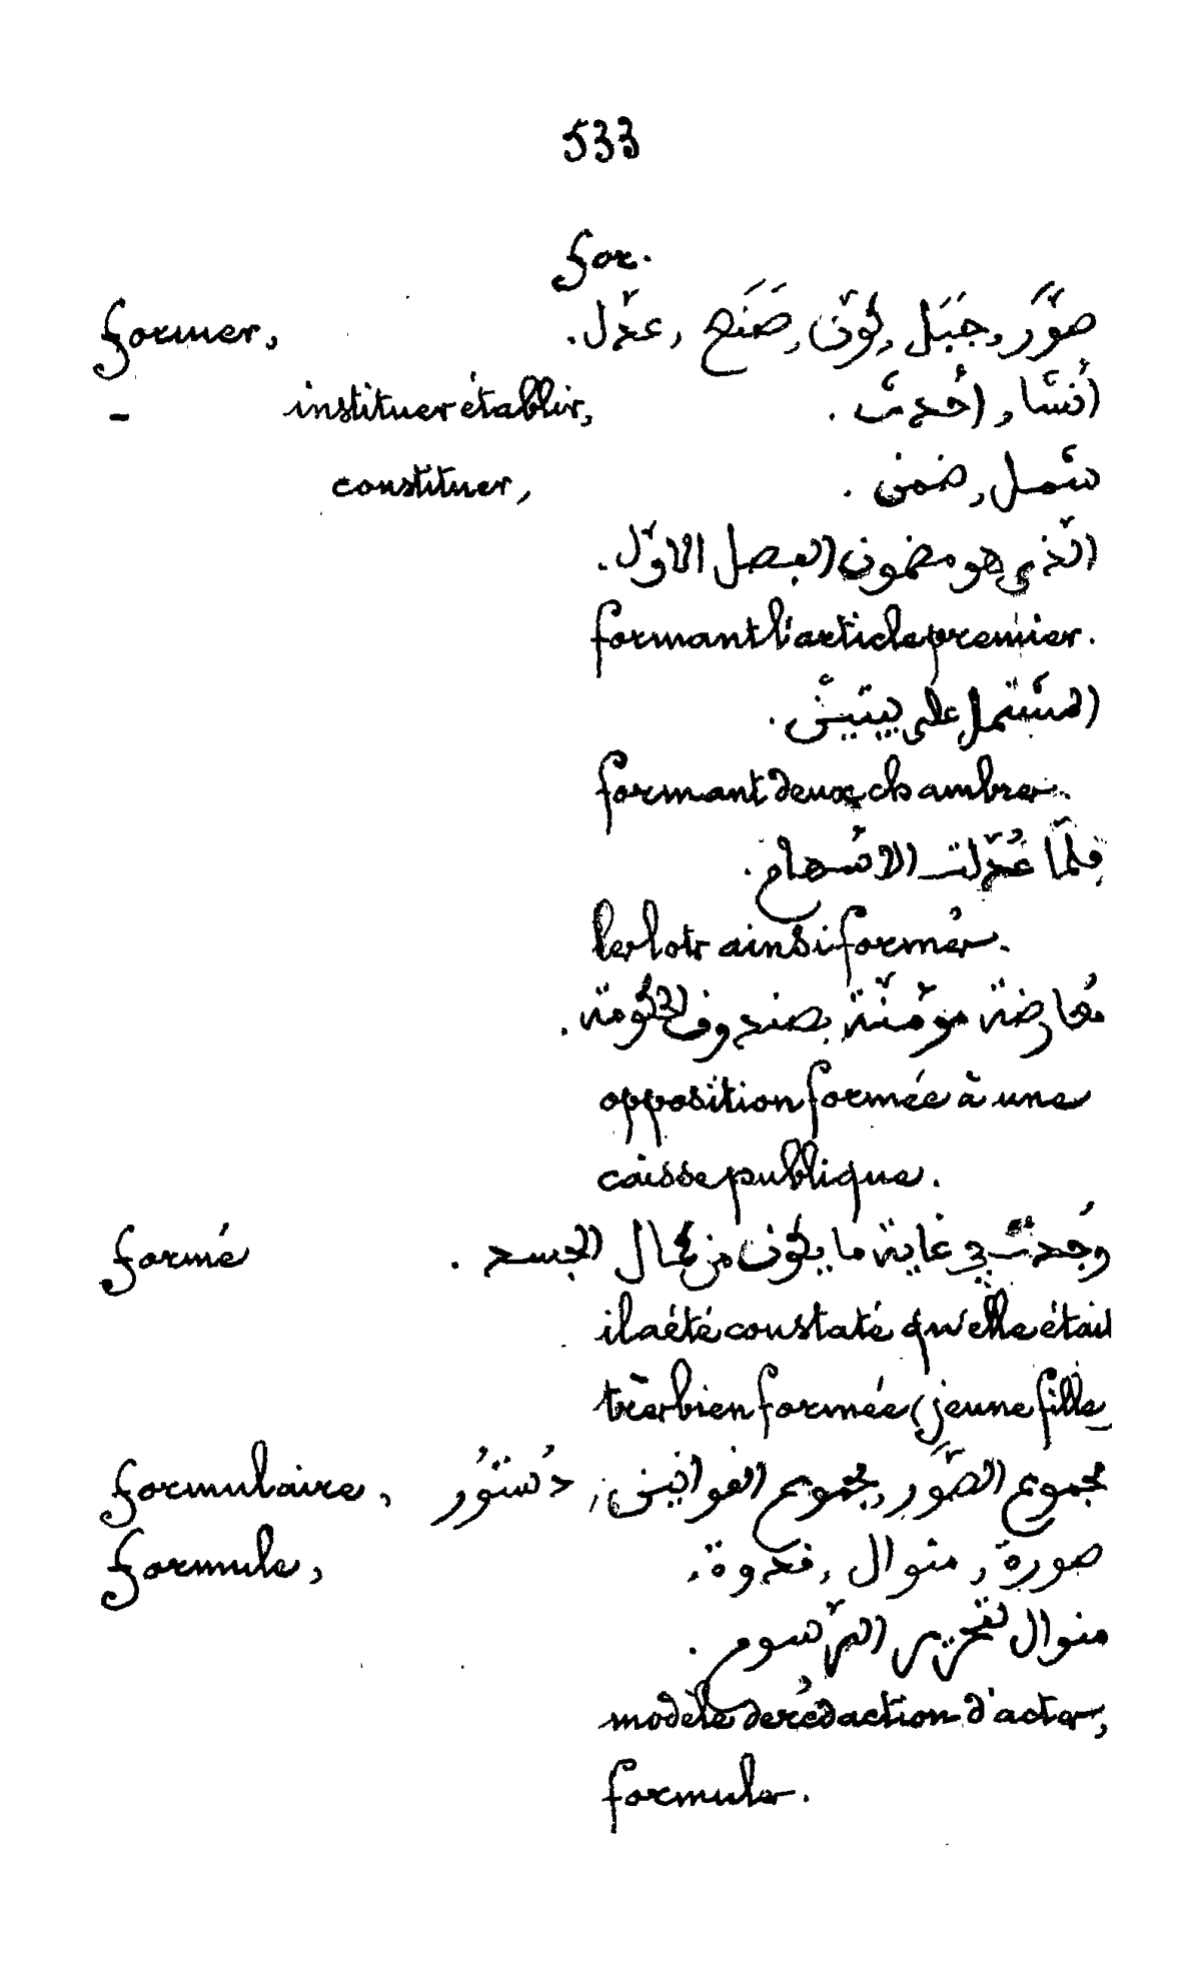 533
for.
former, صَوَّرَ, جَبَلَ, كَوَّنَ, صَنَعَ, عدّل.
- instituer établir, أَنشَأ, أَحدث.
constituer, شمل, ضمن.
الّذي هو مضمون الفصل الاوّل.
formant l'article premier.
المشتمل على بيتين.
formant deux chambres.
فلمّا عُدّلت الاسهام.
les lots ainsi formés.
مُعارضة مؤمّنة بصندوق الحكومة.
opposition formée à une
caisse publique.
formé وُجدت في غاية ما يكون من كمال الجسد.
il a été constaté qu'elle était
très bien formée (jeune fille)
formulaire, مجموع الصّور, مجموع القوانين, دُستُور
formule, صورة, منوال, قدوة.
منوال لتحرير الرّسوم.
modèle de rédaction d'actes,
formules.